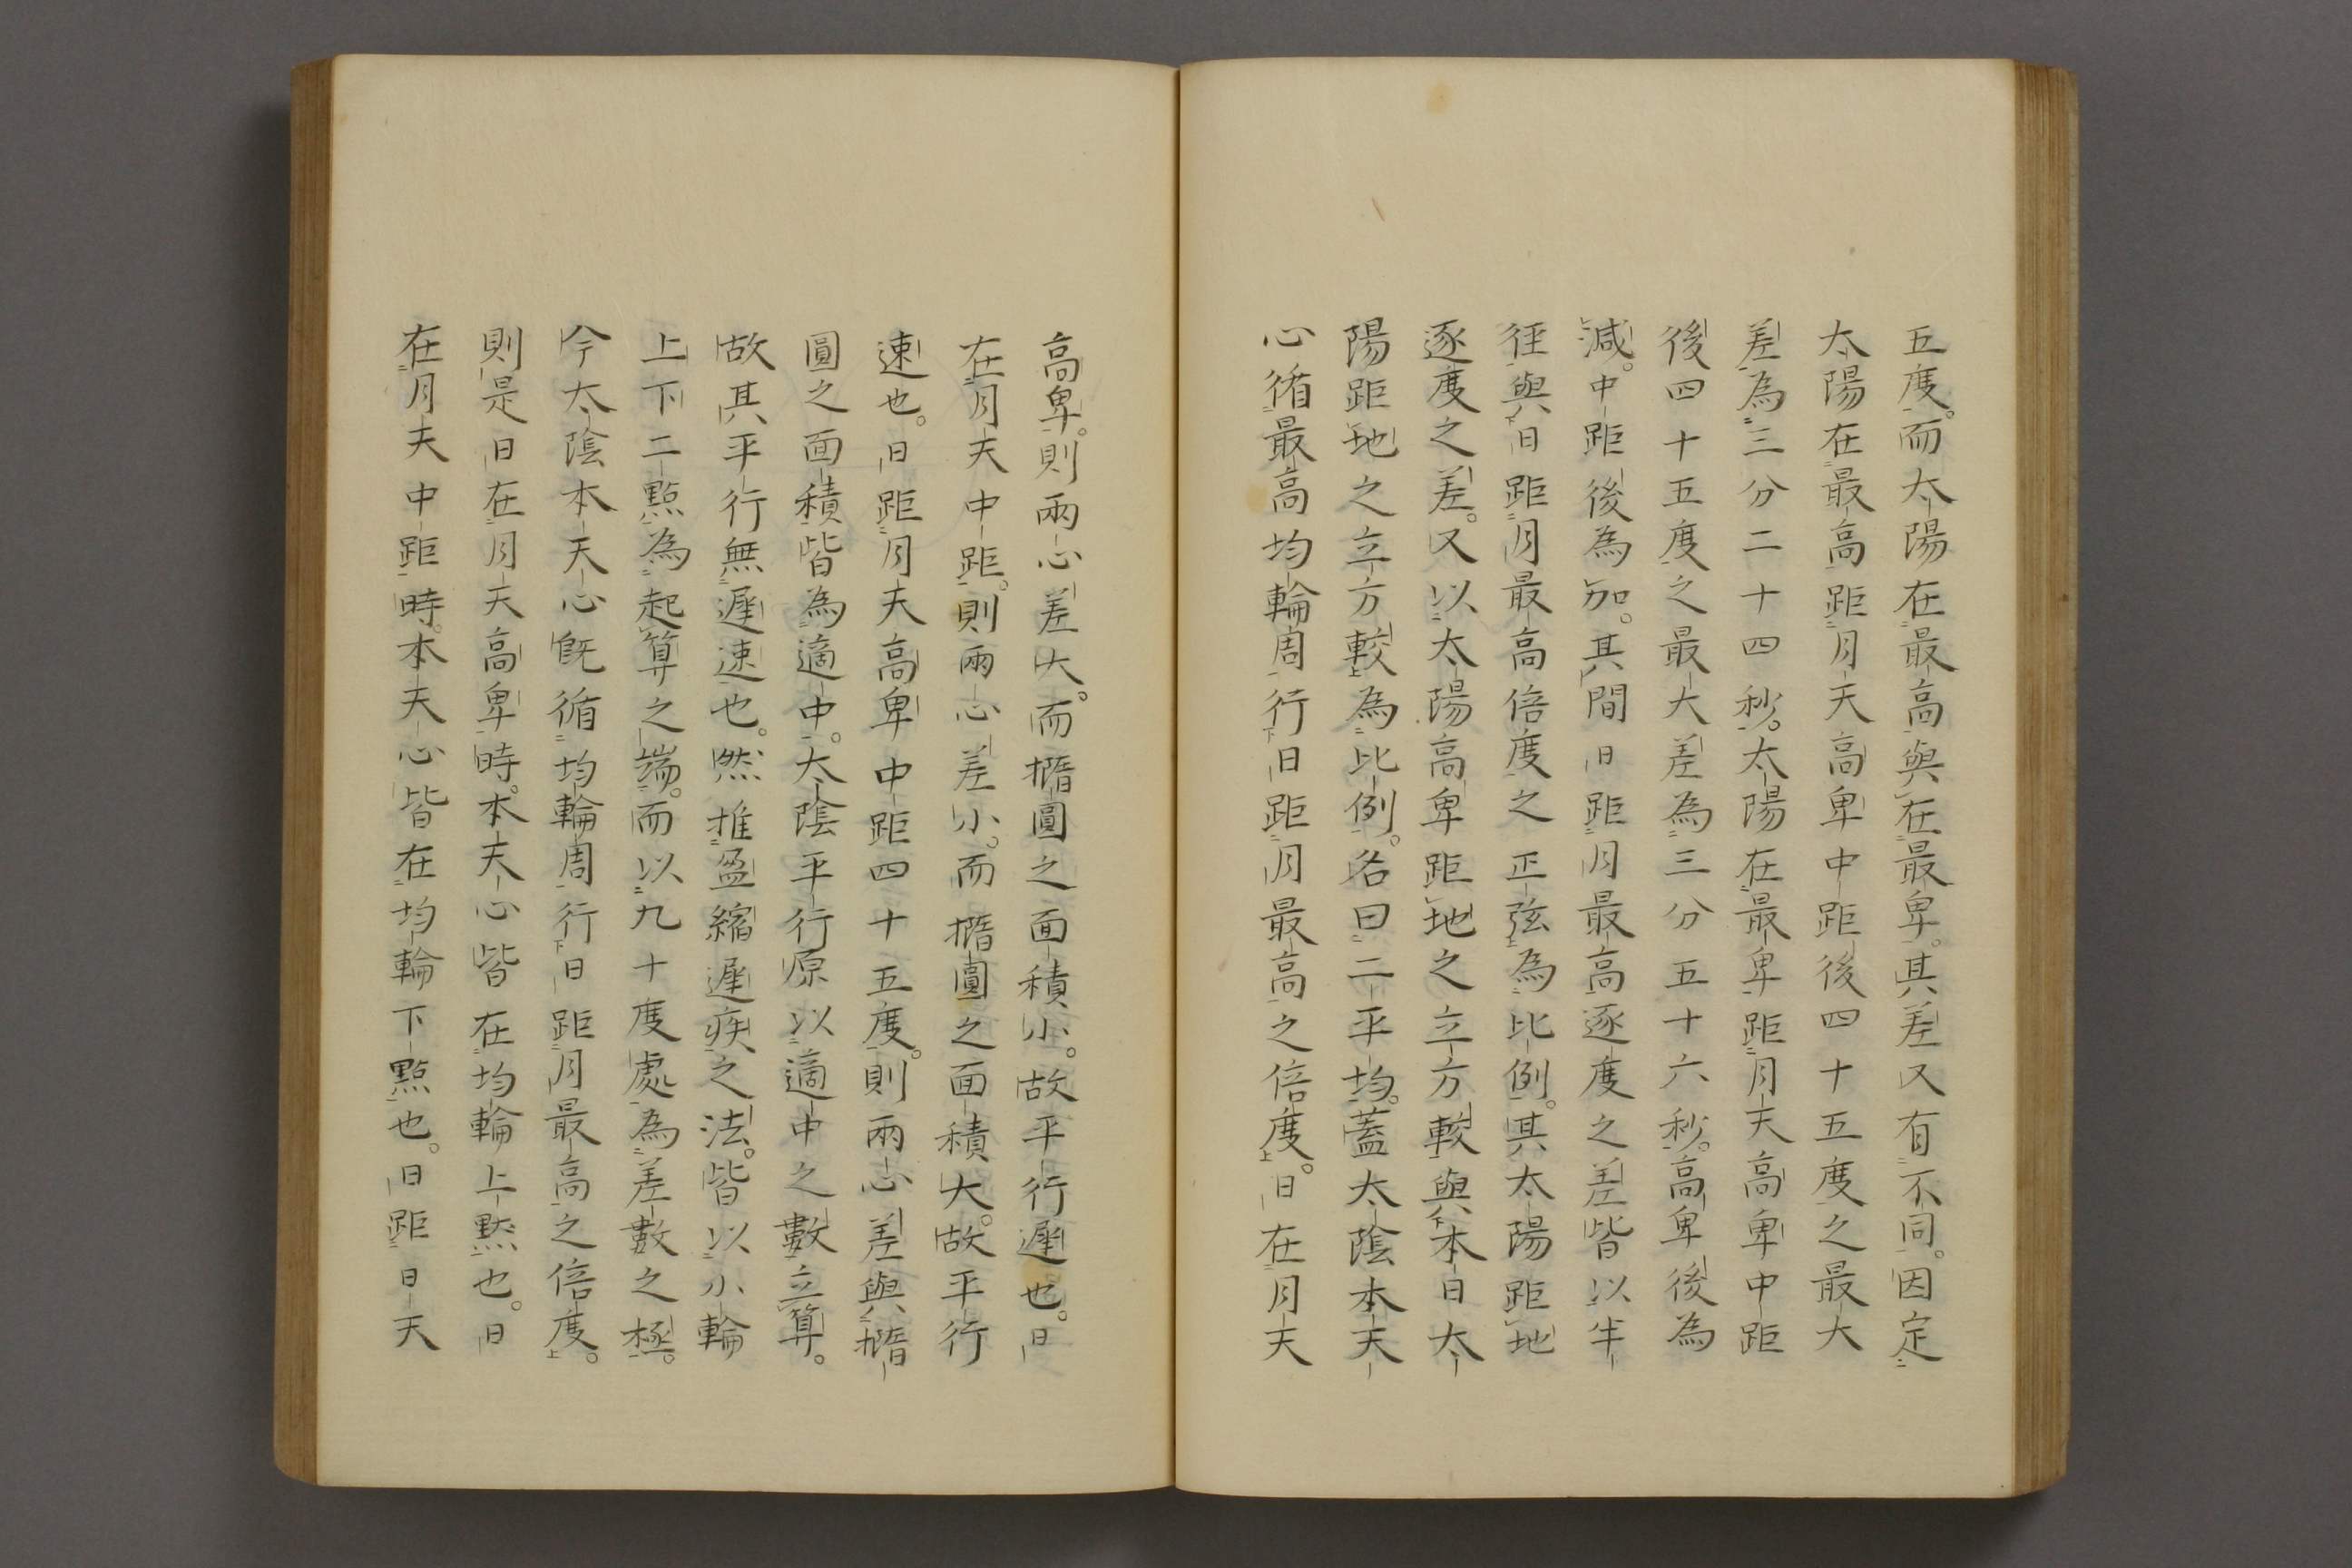 五度。而太陽在最高與在最卑。其差又有不同。因定
太陽在最高距月天高卑中距後四十五度之最大
差為三分二十四秒。太陽在最卑距月天高卑中距
後四十五度之最大差為三分五十六秒。高卑後為
減。中距後為加。其間日距月最高逐度之差皆以半
徑與日距月最高倍度之正弦為比例。其太陽距地
逐度之差。又以太陽高卑距地之立方較與本日太
陽距地之立方較為比例。名曰二平均。蓋太陰本天
心循最高均輪周行日距月最高之倍度。日在月天
高卑。則兩心差大。而橢圓之面積小。故平行遲也。日
在月天中距。則兩心差小。而橢圓之面積大。故平行
速也。日距月天高卑中距四十五度。則兩心差與橢
圓之面積皆為適中。太陰平行原以適中之數立算。
故其平行無遲速也。然推盈縮遲疾之法。皆以小輪
上下二點為起算之端。而以九十度處為差數之極。
今太陰本天心旣循均輪周行日距月最高之倍度。
則是日在月天高卑時。本天心皆在均輪上點也。日
在月天中距時。本天心皆在均輪下點也。日距日天